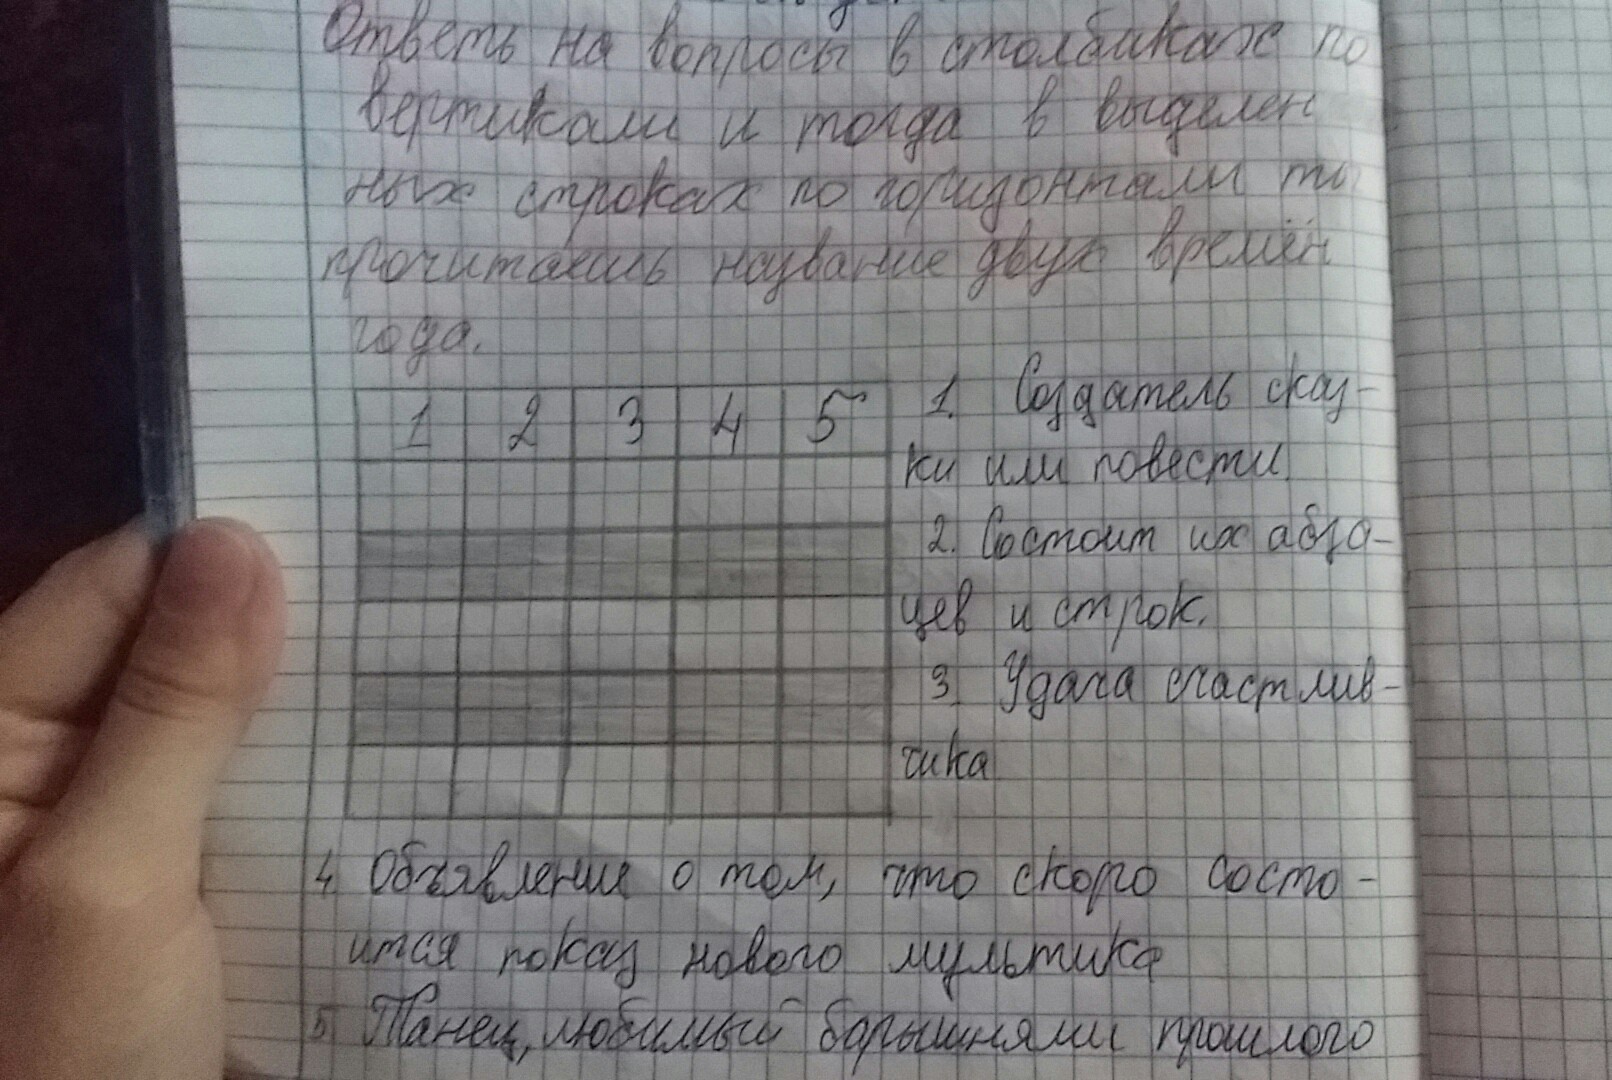 Ответь на вопросы в столбиках по
вертикали и тогда в выделен
ных строках по горизонтали ты
прочитаешь название двух времён
года.
1 2 3 4 5
1. Создатель сказ-
ки или повести.
2. Состоит их абза-
цев и строк.
3. Удача счастлив-
чика
4. Объявление о том, что скоро состо-
ится показ нового мультика
5. Танец, любимый барышнями прошлого